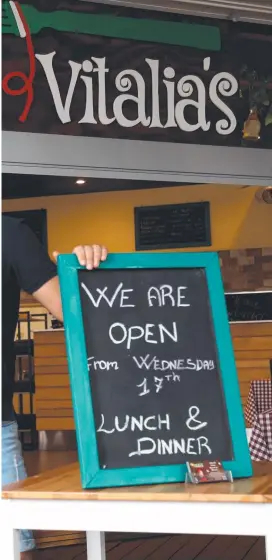 Vitalia's
WE ARE
OPEN
From WEDNESDAY
17th
LUNCH &
DINNER